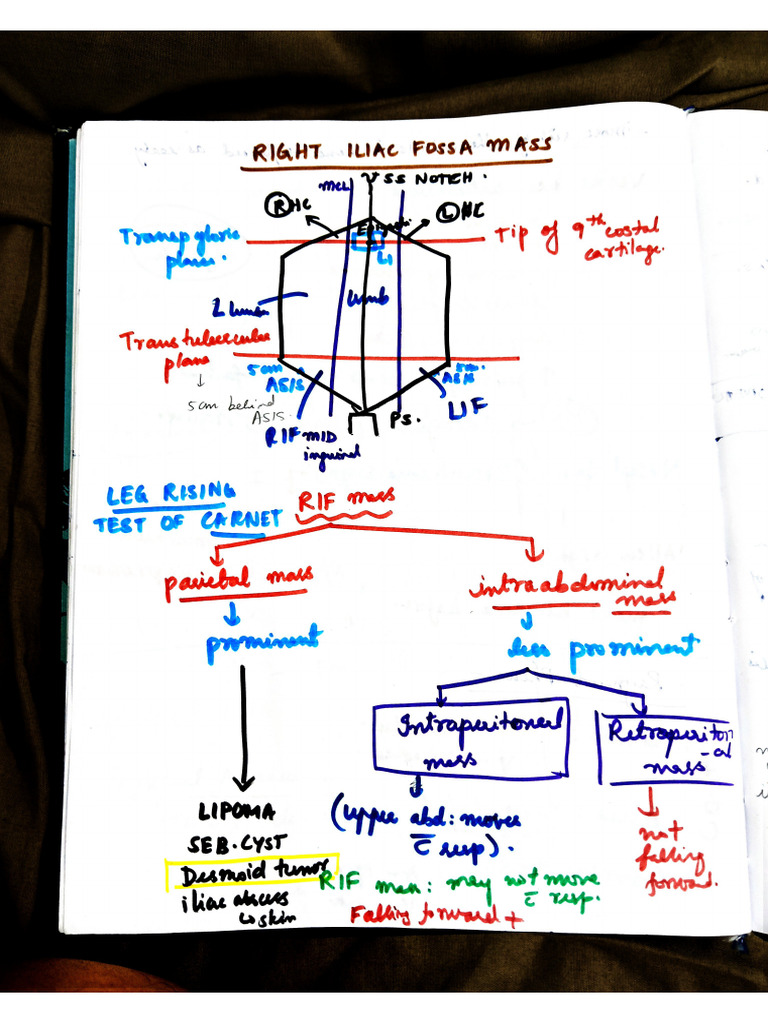 RIGHT ILIAC FOSSA MASS
MCL
SS NOTCH.
Ⓡ HC
Ⓛ HC
Transpyloric
plane.
Epigastri
L1
Tip of 9th costal
cartilage.
umb
Transtubercular
plane
5cm
ASIS
5cm
ASIS
↓
5cm behind
ASIS.
RIF
MID
inguinal
Ps.
LIF
LEG RISING
TEST OF CARNET
RIF mass
parietal mass
intraabdominal
mass
prominent
less prominent
Intraperitoneal
mass
Retroperiton
-al
mass
LIPOMA
SEB.CYST
Desmoid tumor
iliac abscess
↳ skin
(upper abd: moves
c̄ resp).
RIF mass: may not move
c̄ resp.
Falling forward +
not
falling
forward.